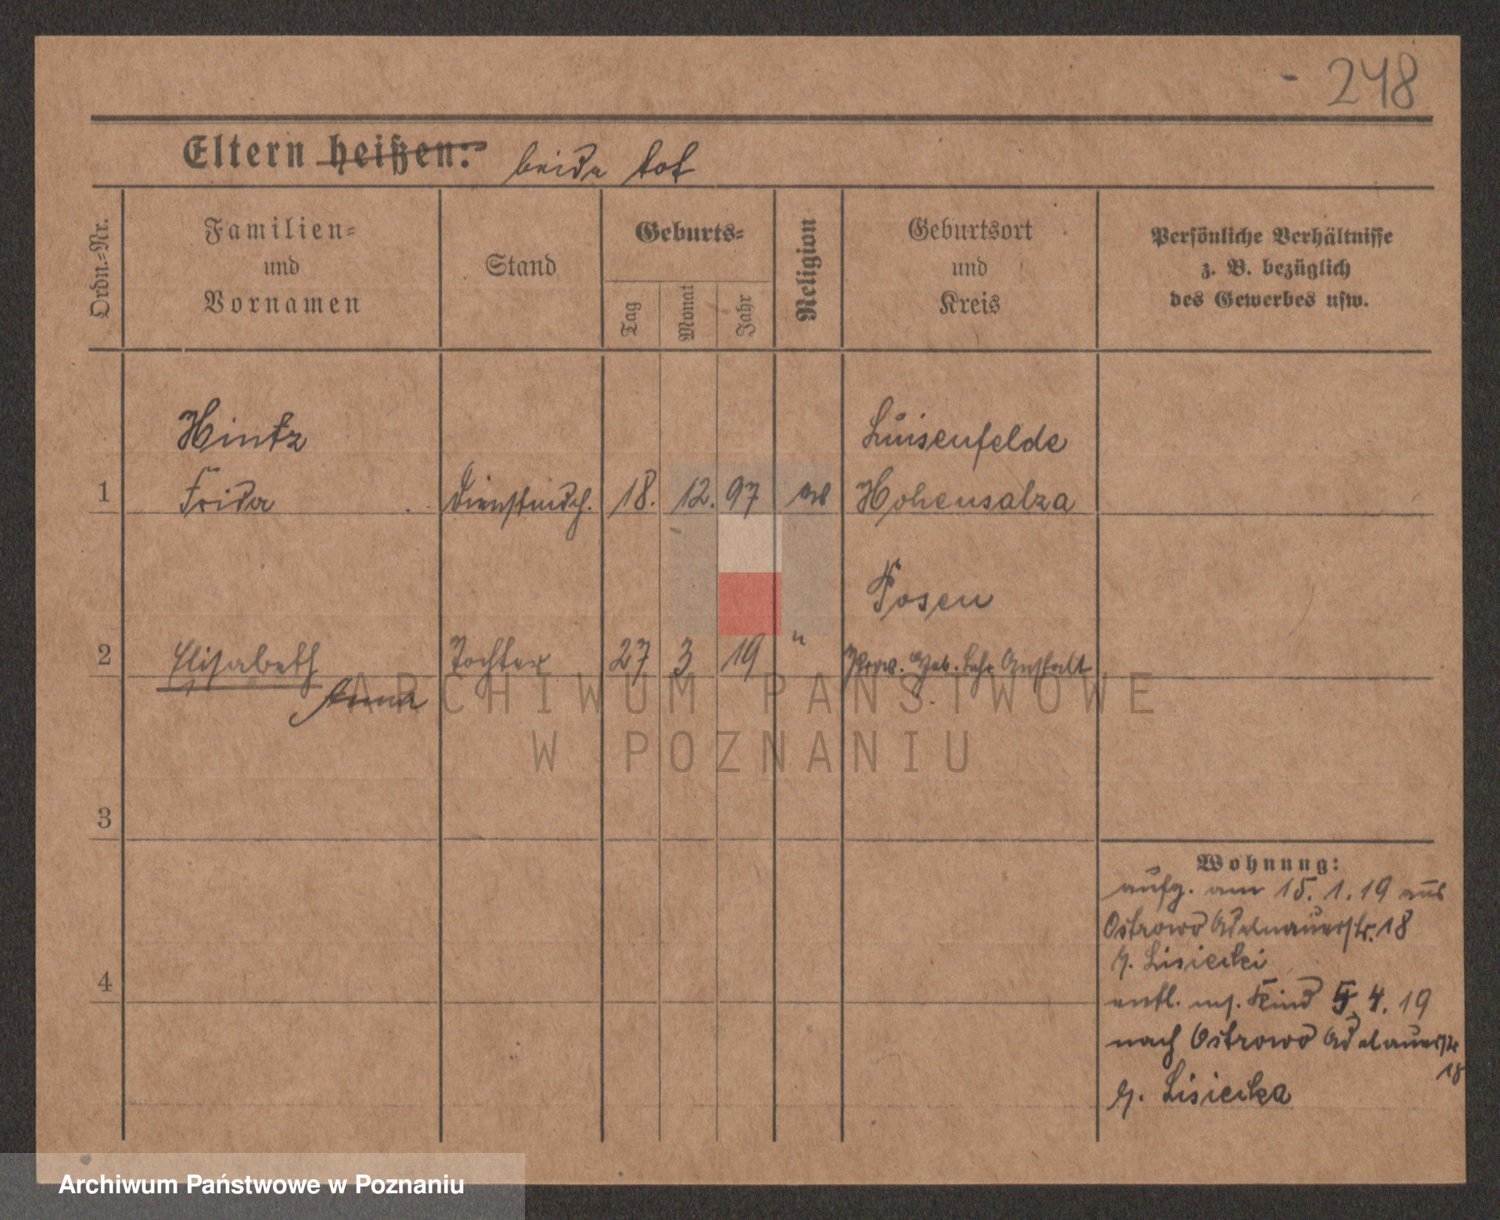 - 248
Eltern heißen: beide tot
Ordn.-Nr.
Familien-
und
Vornamen
Stand
Geburts-
Tag
Monat
Jahr
Religion
Geburtsort
und
Kreis
Persönliche Verhältnisse
z. B. bezüglich
des Gewerbes usw.
Hintz
Luisenfelde
1 Frida Dienstmdch. 18. 12. 97 ev Hohensalza
Posen
2 Elisabeth Tochter 27 3 19 " Prov. Heb. Lehr Anstalt
Anna
3
4
Wohnung:
aufg. am 15. 1. 19 aus
Ostrowo Adelnauerstr. 18
b. Lisiecki
entl. m. Kind 5. 4. 19
nach Ostrowo Adelnauerstr
18
b. Lisiecka
ARCHIWUM PAŃSTWOWE
W POZNANIU
Archiwum Państwowe w Poznaniu